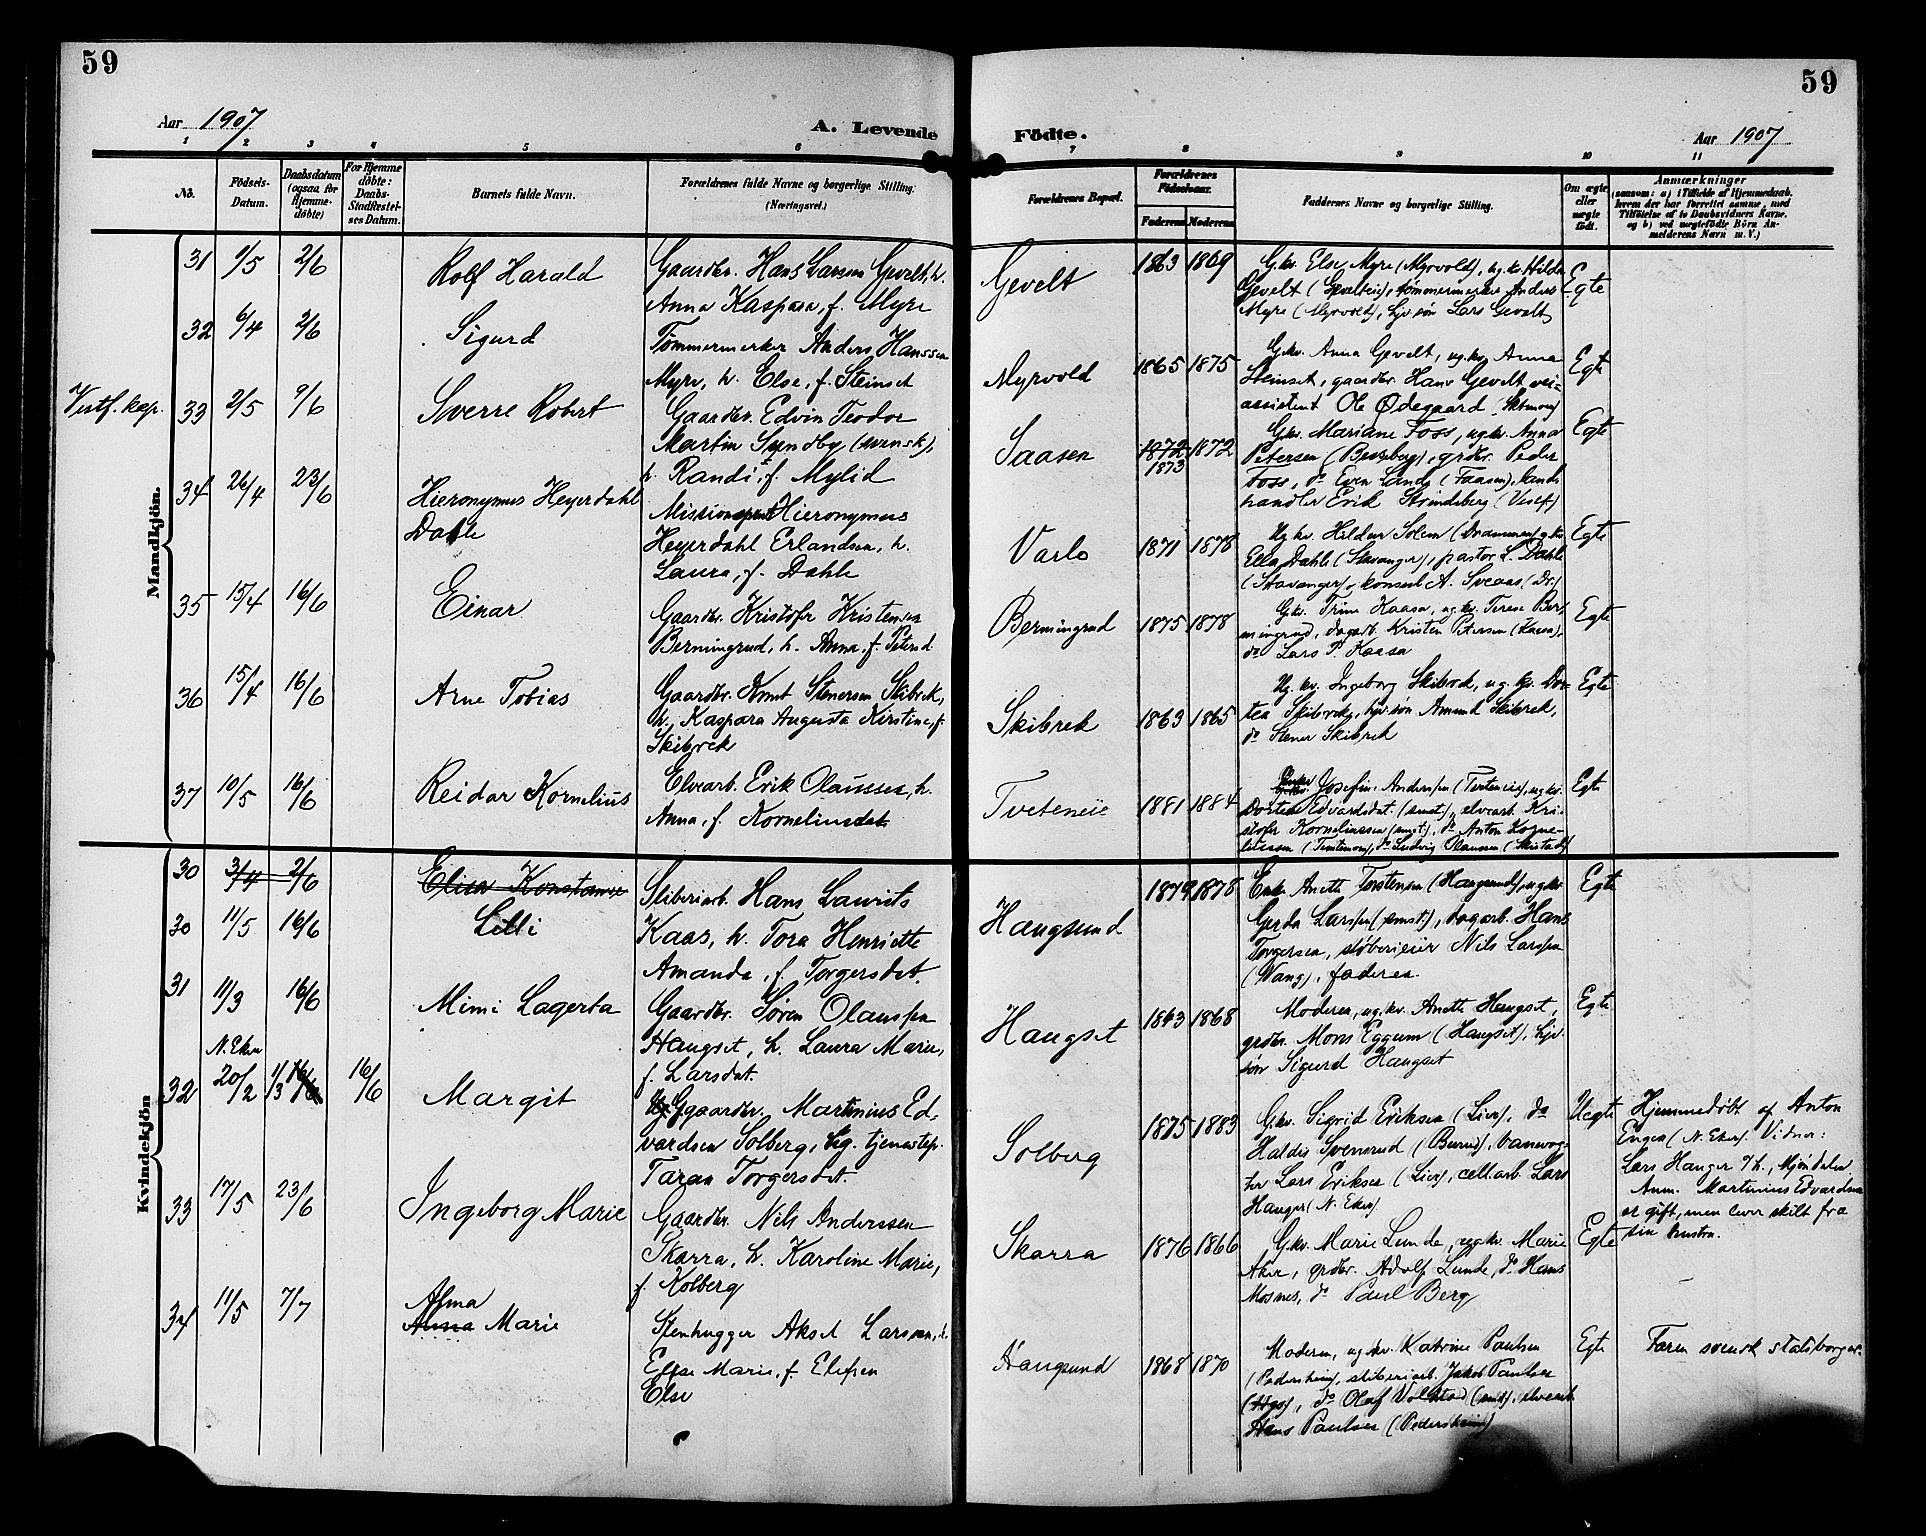 59
59
Aar 1907
A. Levende
Fødte.
Aar 1907
1 2 3 4 5 6
7 8 9 10 11
No.
Fødsels-
Datum.
Daabsdatum
(ogsaa for
Hjemme-
døbte)
For Hjemme
døbte:
Daabs-
Stadfæstel-
ses Datum.
Barnets fulde Navn.
Forældrenes fulde Navne og borgerlige Stilling.
(Næringsvei.)
Forældrenes Bopæl.
Forældrenes
Fødselsaar.
Faderens Moderens
Faddernes Navne og borgerlige Stilling.
Om ægte
eller
uægte
født.
Anmærkninger
(saasom: a) i Tilfælde af Hjemmedaab.
hvem der har forrettet samme, med
Tilføielse af to Daabsvidners Navne.
og b) ved uægtefødte Børn An-
melderens Navn m. V.)
Mandkjøn.
31 9/5 2/6 Rolf Harald
Gaardbr. Hans Larsen Gevelt, h.
Anna Kaspara, f. Myre
Gevelt 1863 1869
G.kv. Else Myre (Myrvold), ug.kv. Hilda
Gevelt, tømmermerker Anders
Myre (Myrvold), hjv.søn Lars Gevelt
Egte
32 6/4 2/6 Sigurd
Tømmermerker Anders Hanssen
Myre, h. Else, f. Steinset
Myrvold 1865 1875
G.kv. Anna Gevelt, ug.kv. Anna
Steinset, gaardbr. Hans Gevelt, vei-
assistent Ole Ødegaard
Egte
Vestf. kap.
33 2/5 9/6 Sverre Robert
Gaardbr. Edvin Teodor
Martin Sundby (svensk),
h. Randi, f. Mylid
Saasen 1872 1872
1873
G.kv. Mariane Foss, ug.kv. Anna
Petersen, grdbr. Peder
Foss, do Even Lunds, lands
handler Erik Strindeberg (Vestf)
Egte
34 26/4 23/6 Hieronymus Heyerdahl
Dahle
Missionsprest Hieronymus
Heyerdahl Erlandsen, h.
Laura, f. Dahle
Varlo 1871 1878
Ug.kv. Hildur Solem (Drammen), g.kv.
Ella Dahle (Stavanger), pastor L. Dahle
(Stavanger), konsul A. Sveaas (Dr.)
Egte
35 15/4 16/6 Einar
Gaardbr. Kristofer Kristensen
Bermingrud, h. Anna, f. Petersd.
Bermingrud 1875 1878
G.kv. Trine Kaasa, ug.kv. Terese Ber-
mingrud, dagarb. Kristen Petersen (Kaasa),
do Lars P. Kaasa
Egte
36 15/4 16/6 Arne Tobias
Gaardbr. Knut Stenersen Skibrek,
h. Kaspara Augusta Kirstine, f.
Skibrek
Skibrek 1863 1865
Ug.kv. Ingeborg Skibrek, ug.kv. Dor-
tea Skibrek, hjv.søn Amund Skibrek,
do Stener Skibrek
Egte
37 10/5 16/6 Reidar Kornelius
Elvearb. Erik Olaussen, h.
Anna, f. Korneliusdat.
Tveteneie 1881 1884
Josefine Andersen, ug.kv.
Dortea Edvardsdat. (smst.), elvearb. Kri-
stofer Korneliussen (smst.), do Anton Korne-
liussen, do Ludvig Olaussen
Egte
Kvindekjøn
30 3/4 2/6 Elisa Konstanse
30 11/5 16/6 Lilli
Støberiarb. Hans Laurits
Kaas, h. Tora Henriette
Amanda, f. Torgersdat.
Haugsund 1879 1878
Enke Anette Torstensen (Haugsund), ug.kv.
Gerda Larssen (smst.), dagarb. Hans
Torgersen, støberieier Nils Larssen
(Vang), faderen.
Egte
31 11/3 16/6 Mimi Lagerta
Gaardbr. Søren Olaussen
Haugset, h. Laura Marie,
f. Larsdat.
Haugset 1863 1868
Moderen, ug.kv. Anette Haugset,
grdbr. Mons Eggum (Haugset), hjv.
søn Sigurd Haugset
Egte
N. Eker
32 20/2 1/3 16/6 16/6 Margit
Gaardbr. Martinius Ed-
vardsen Solberg, ug. tjenestep.
Taran Torgersdat.
Solberg 1875 1883
G.kv. Sigrid Eriksen (Lier), do
Haldis Svensrud, banevog-
ter Lars Eriksen (Lier), cell.arb. Lars
Hanger (N. Eker)
Uegte
Hjemmedøbt af Anton
Engen (N. Eker). Vidner:
Lars Hanger o/h., Mjøndalen
Anm. Martinius Edvardsen
er gift, men lever skilt fra
sin hustru.
33 17/5 23/6 Ingeborg Marie
Gaardbr. Nils Anderssen
Skarra, h. Karoline Marie,
f. Kolberg
Skarra 1876 1866
G.kv. Marie Lunde, ug.kv. Marie
Aker, grdbr. Adolf Lunde, do Hans
Mosnes, do Paul Berg
Egte
34 11/5 7/7 Alma
Anna Marie
Stenhugger Aksel Larssen, h.
Elise Marie, f. Elefsen
Else
Haugsund 1868 1870
Moderen, ug.kv. Katrine Paulsen
(Pedersheim), støberiarb. Jakob Paulsen
do Olaf Volstad (smst.), elvearb.
Hans Paulsen (Pedersheim)
Egte
Faren svensk statsborger.